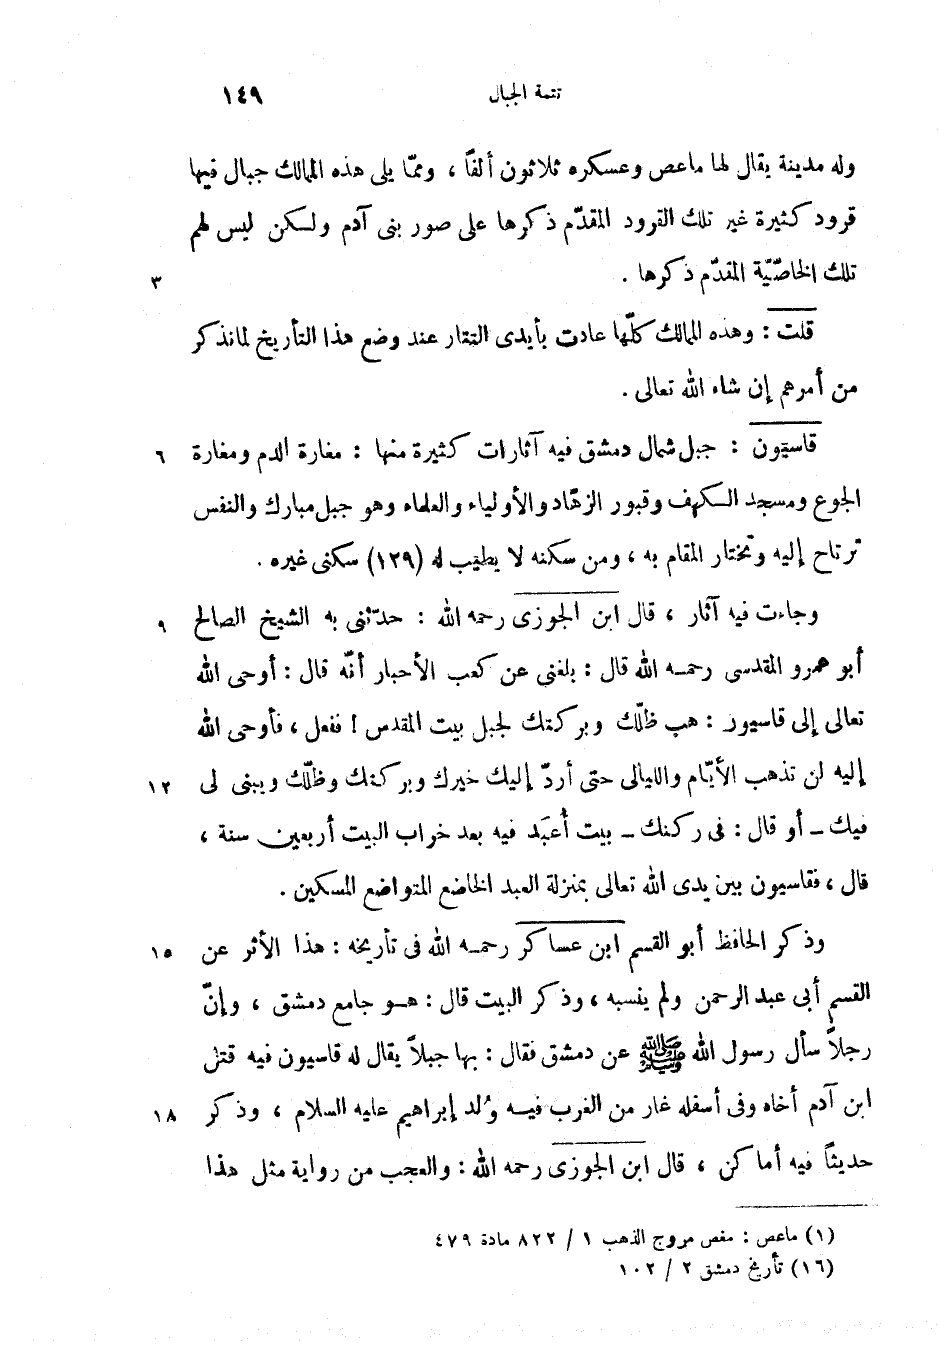 تتمة الجبال ١٤٩
وله مدينة يقال لها ماعص وعسكره ثلاثون ألفاً ، وممّا يلى هذه الممالك جبال فيها
قرود كثيرة غير تلك القرود المقدّم ذكرها على صور بنى آدم ولكن ليس لهم
تلك الخاصّيّة المقدّم ذكرها . ٣
قلت : وهذه الممالك كلّها عادت بأيدى التتار عند وضع هذا التأريخ لمانذكر
من أمرهم إن شاء الله تعالى .
قاسيون : جبل شمال دمشق فيه آثارات كثيرة منها : مغارة الدم ومغارة ٦
الجوع ومسجد الكهف وقبور الزهّاد والأولياء والعلماء وهو جبل مبارك والنفس
ترتاح إليه وتختار المقام به ، ومن سكنه لا يطيب له (١٢٩) سكنى غيره .
وجاءت فيه آثار ، قال ابن الجوزى رحمه الله : حدّثنى به الشيخ الصالح ٩
أبو عمرو المقدسى رحمه الله قال : بلغنى عن كعب الأحبار أنّه قال : أوحى الله
تعالى إلى قاسيون : هب ظلّك وبركتك لجبل بيت المقدس ! ففعل ، فأوحى الله
إليه لن تذهب الأيّام والليالى حتى أردّ إليك خيرك وبركتك وظلّك ويبنى لى ١٢
فيك ــ أو قال : فى ركنك ــ بيت أُعبَد فيه بعد خراب البيت أربعين سنة ،
قال ، فقاسيون بين يدى الله تعالى بمنزلة العبد الخاضع المتواضع المسكين .
وذكر الحافظ أبو القسم ابن عساكر رحمه الله فى تأريخه : هذا الأثر عن ١٥
القسم أبى عبد الرحمن ولم ينسبه ، وذكر البيت قال : هو جامع دمشق ، وإنّ
رجلاً سأل رسول الله ﷺ عن دمشق فقال : بها جبلاً يقال له قاسيون فيه قتل
ابن آدم أخاه وفى أسفله غار من الغرب فيه وُلد إبراهيم عليه السلام ، وذكر ١٨
حديثاً فيه أماكن ، قال ابن الجوزى رحمه الله : والعجب من رواية مثل هذا
(١) ماعص : مفص مروج الذهب ١ / ٨٢٢ مادة ٤٧٩
(١٦) تأريخ دمشق ٢ / ١٠٢